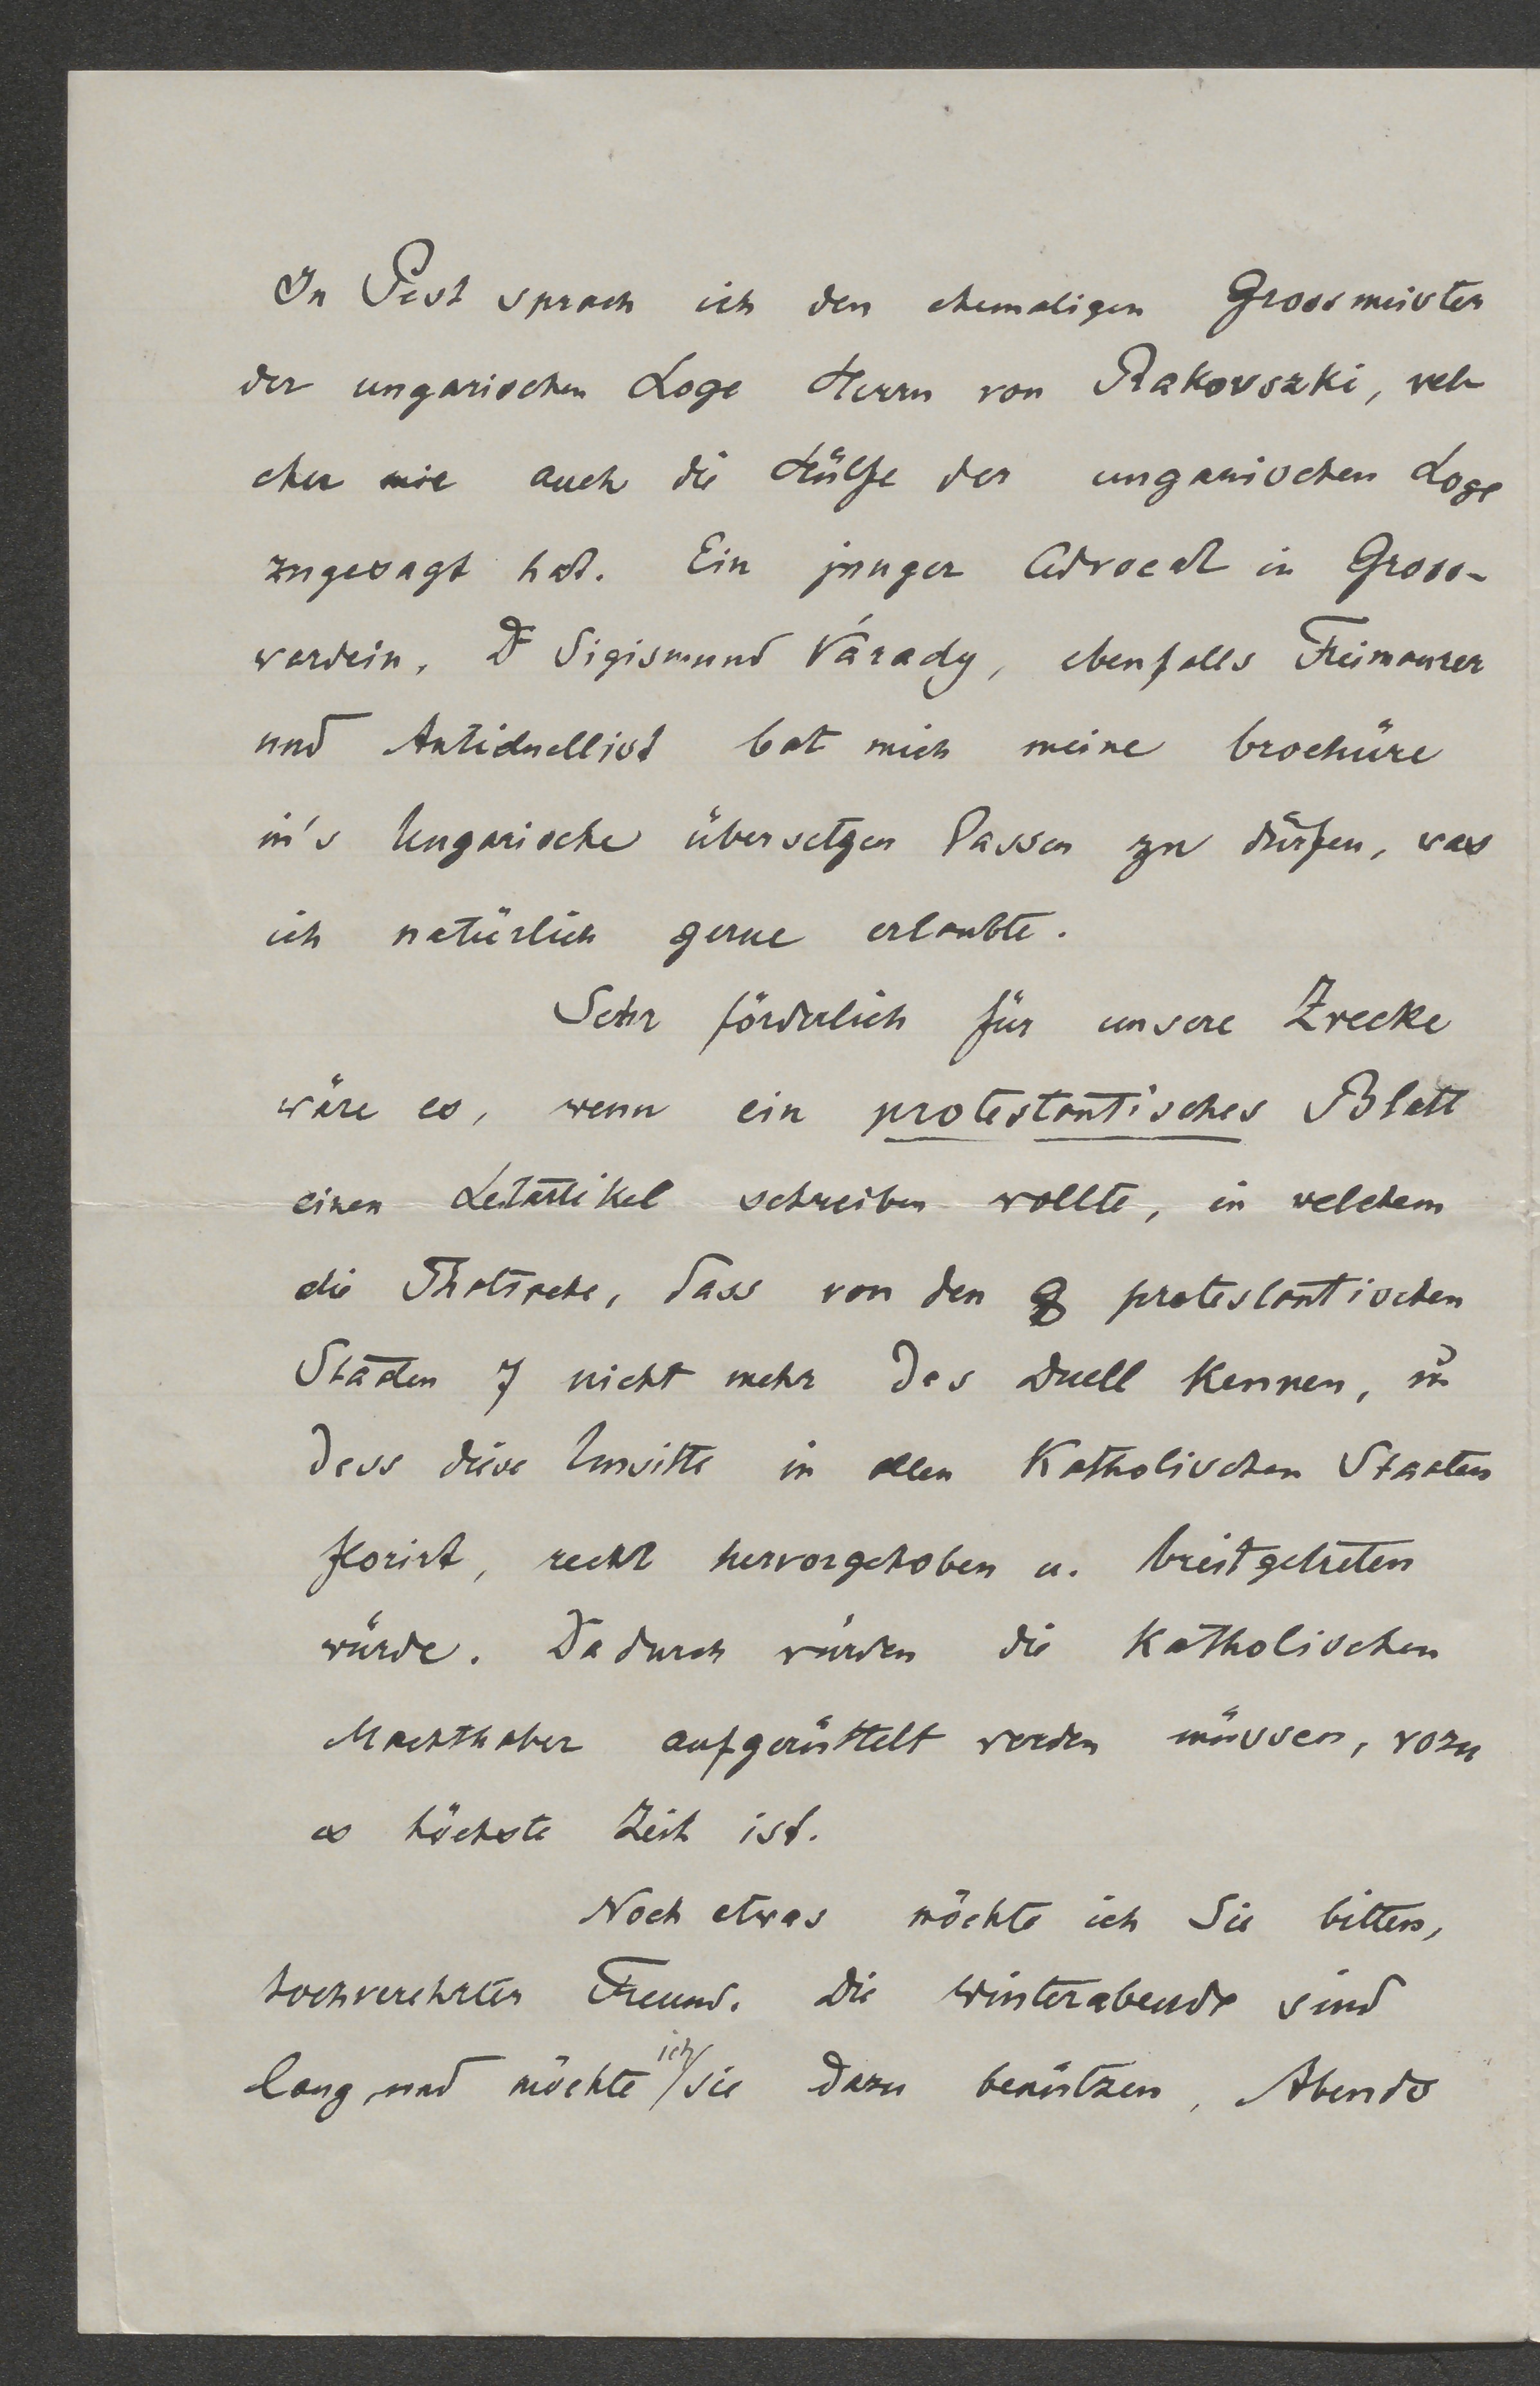 In Pest sprach ich den ehemaligen Grossmeister
der ungarischen Loge Herrn von Rakovszki, wel-
cher mir auch die Hülfe der ungarischen Loge
zugesagt hat. Ein junger Advocat in Gross-
wardein, Dr Sigismund Várady, ebenfalls Freimaurer
und Antiduellist bat mich meine brochüre
in's Ungarische übersetzen lassen zu dürfen, was
ich natürlich gerne erlaubte.
Sehr förderlich für unsere Zwecke
wäre es, wenn ein protestantisches Blatt
einen Leitartikel schreiben wollte, in welchem
die Thatsache, dass von den 8 protestantischen
Staaten 7 nicht mehr das Duell kennen, u
dass diese Unsitte in allen Katholischen Staaten
florirt, recht hervorgehoben u. breitgetreten
würde. Dadurch würden die Katholischen
Machthaber aufgerüttelt werden müssen, wozu
es höchste Zeit ist.
Noch etwas möchte ich Sie bitten,
hochverehrter Freund. Die Winterabende sind
lang und möchte ich sie dazu benützen, Abends